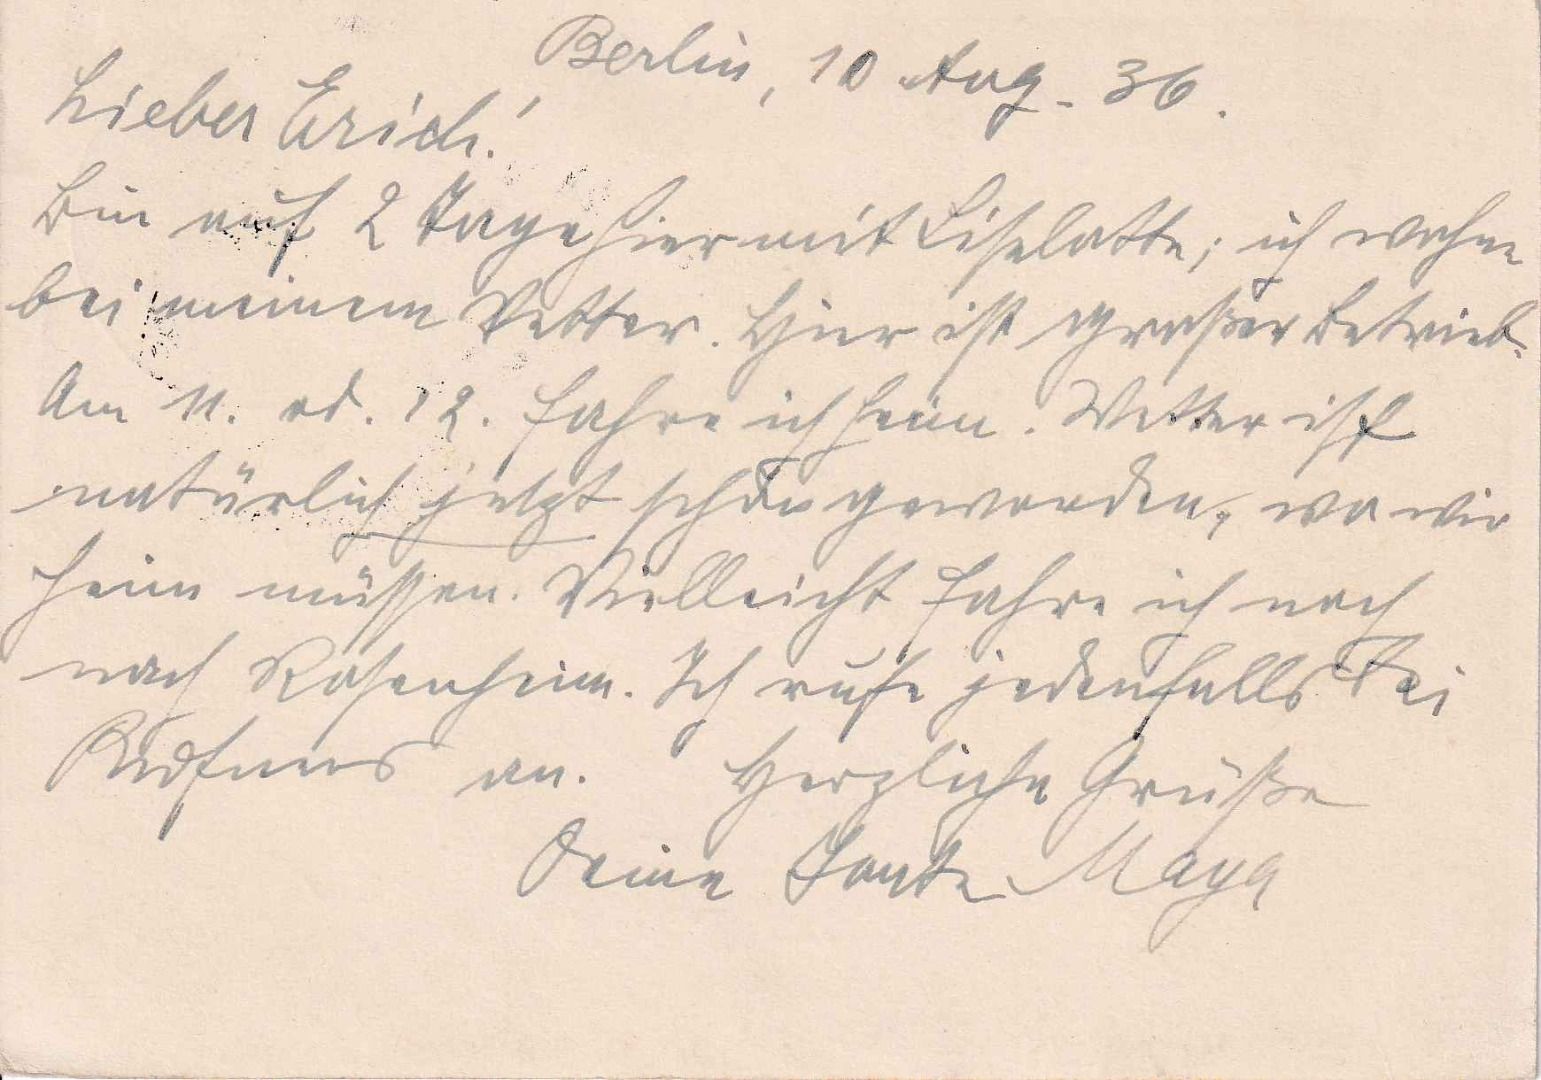 Berlin, 10 Aug. 36.
Lieber Erich!
Bin auf 2 Tage hier mit Liselotte; ich wohne
bei meinem Vetter. Hier ist großer Betrieb.
Am 11. od. 12. fahre ich heim. Wetter ist
natürlich jetzt schön geworden, wo wir
heim müssen. Vielleicht fahre ich noch
nach Rosenheim. Ich rufe jedenfalls bei
an. Herzliche Grüße
Deine Tante Maya